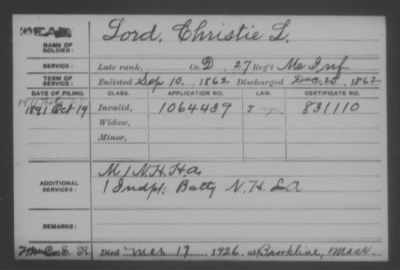 DEAD
NAME OF SOLDIER: Lord, Christie L.
SERVICE: Late rank, Co. D, 27 Reg't Me Inf
TERM OF SERVICE: Enlisted Sep 10, 1862 Discharged Dec. 28, 1862
DATE OF FILING. CLASS. APPLICATION NO. LAW. CERTIFICATE NO.
1891 Oct 19 Invalid, 1064439 J 831110
Widow,
Minor,
ADDITIONAL SERVICES: M 1 N.H.H.A
1 Indpt. Batty N.H. L A
REMARKS:
Died Mar 17 1926, at Brookline, Mass.